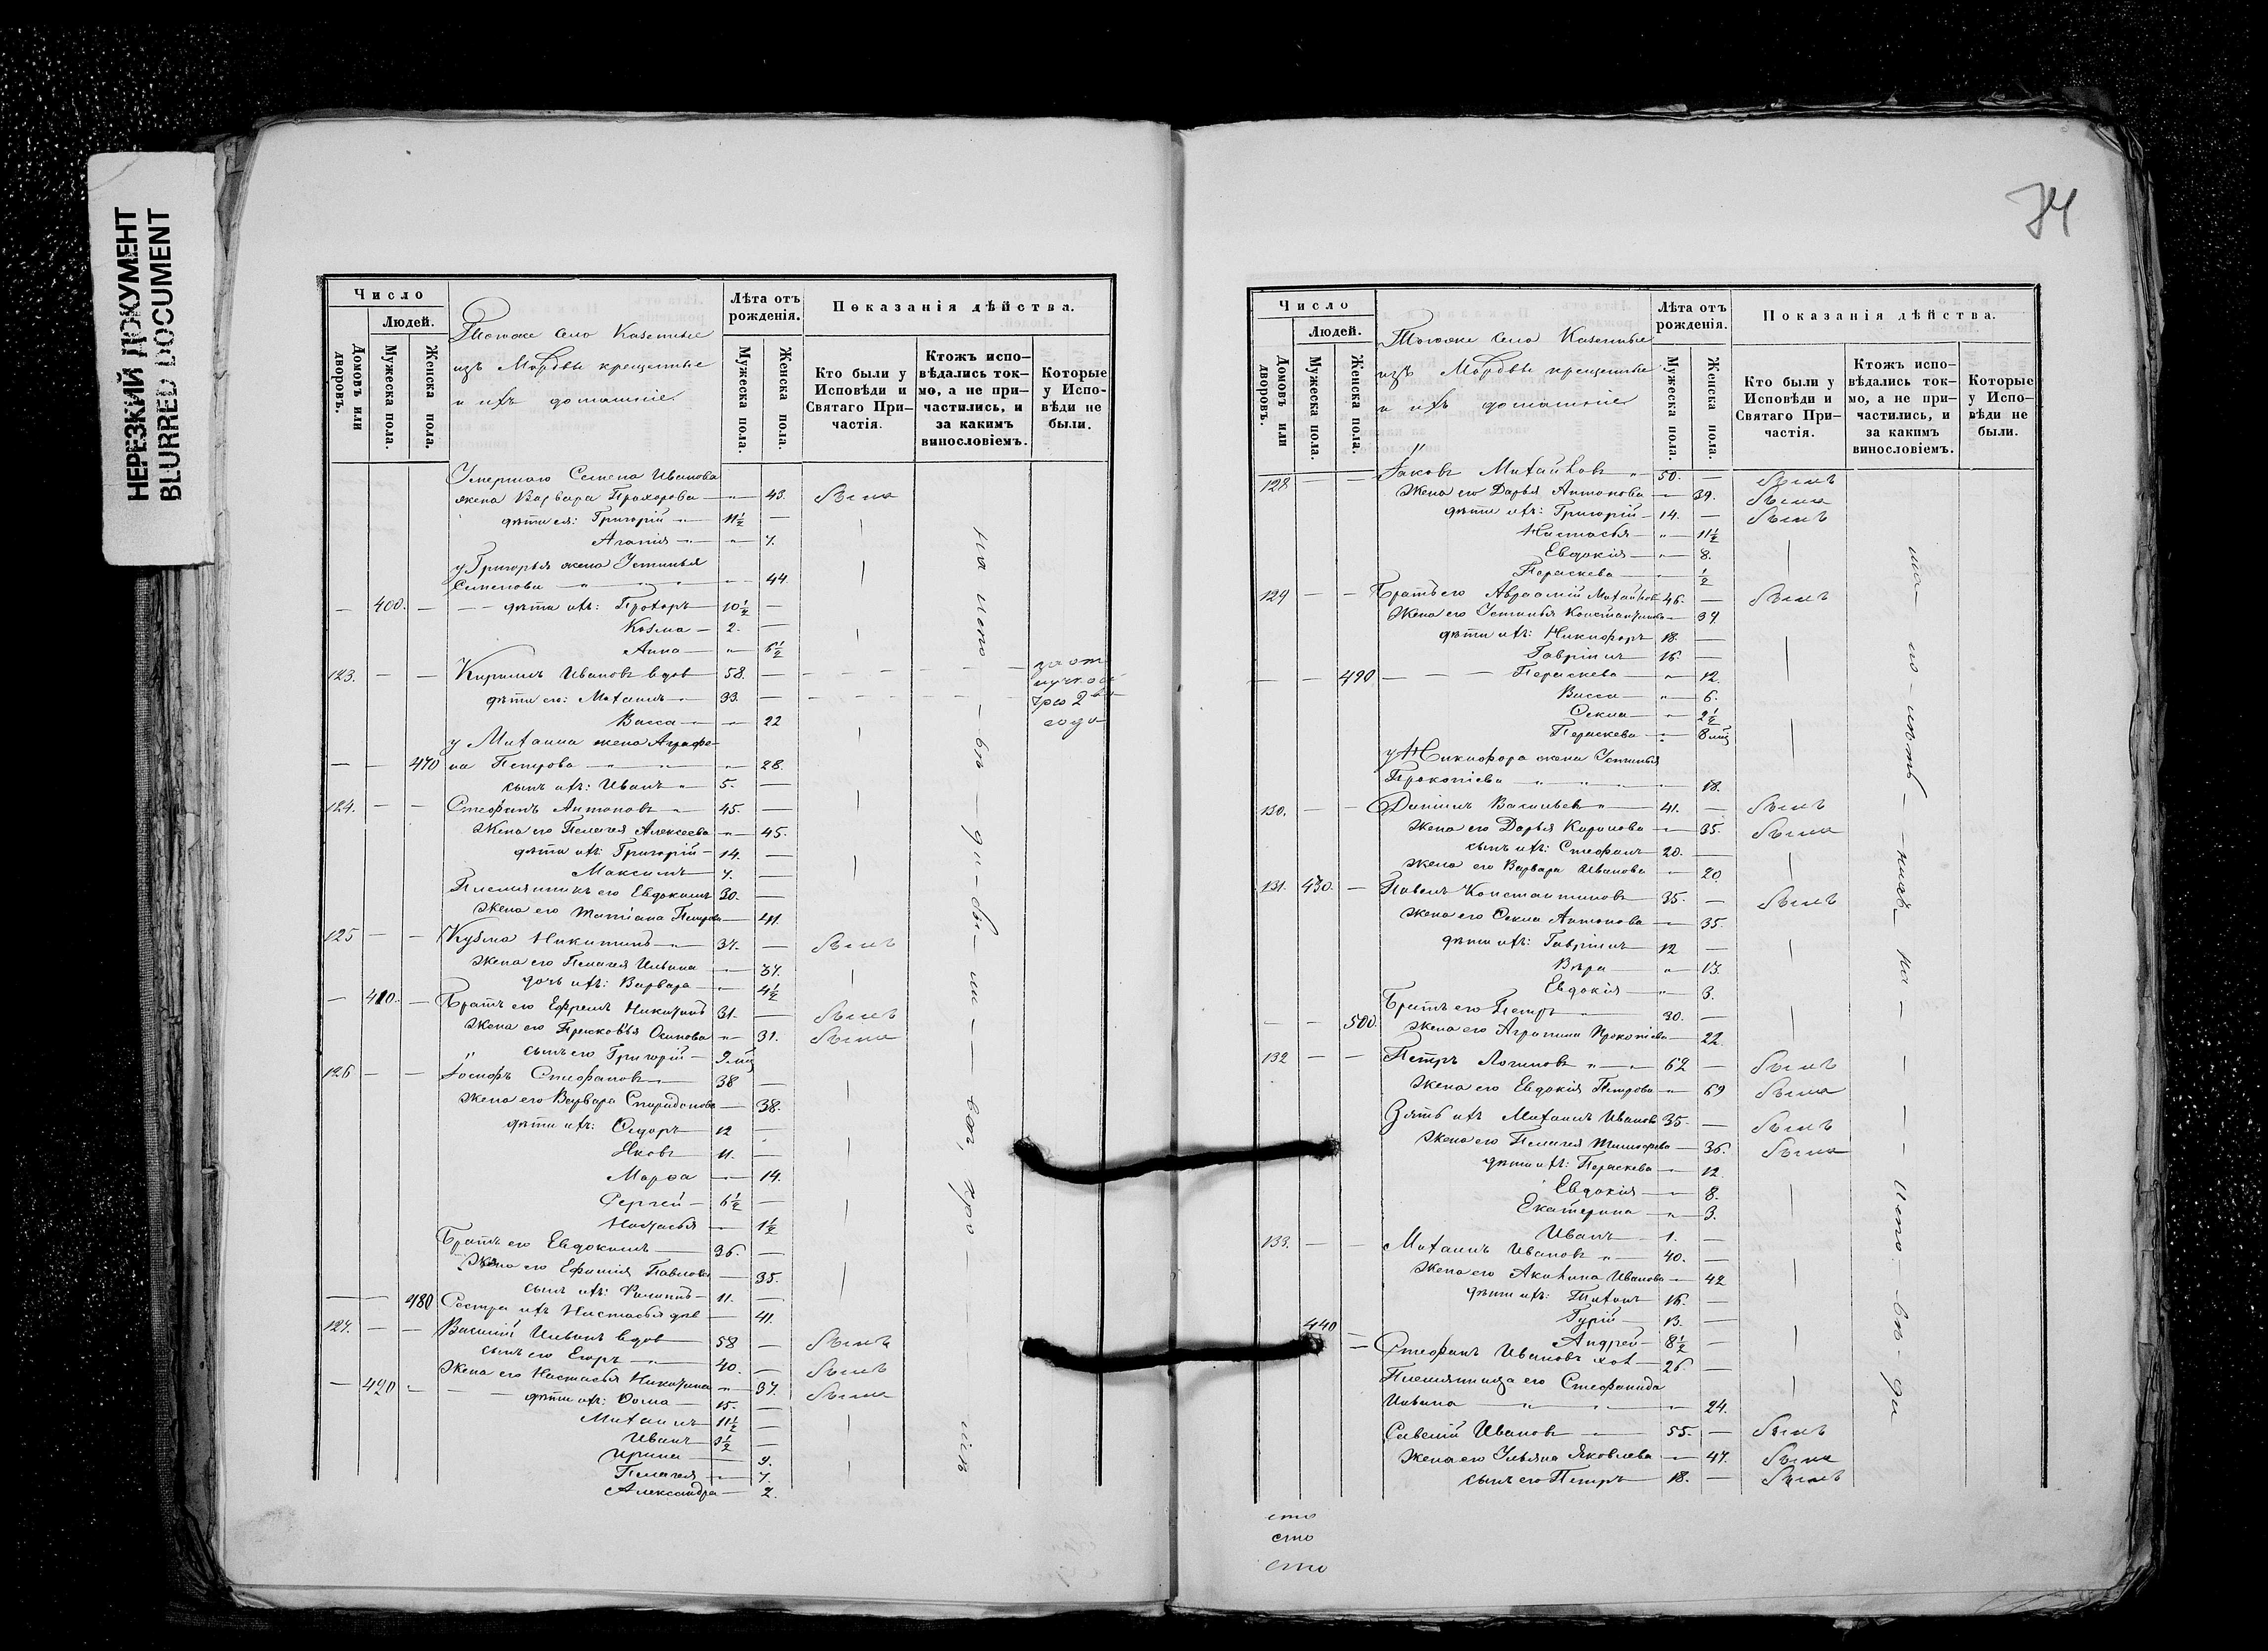 НЕРЕЗКИЙ ДОКУМЕНТ
BLURRED DOCUMENT
Число
Людей.
Домовъ или дворовъ.
Мужеска пола.
Женска пола.
Тогоже села Казенные
изъ Мордвы крещенные
и ихъ домашніе.
Лѣта отъ рожденія.
Мужеска пола.
Женска пола.
Показанія дѣйства.
Кто были у Исповѣди и Святаго При-частія.
Ктожъ испо-вѣдались ток-мо, а не при-частились, и за какимъ винословіемъ.
Которые у Испо-вѣди не были.
Умершаго Семена Иванова
жена Варвара Прохорова — 43. была
дѣти ея: Григорій — 11½ —
Агапія — 7.
у Григорья жена Устинья
Семенова — 44
— 400. — дѣти ихъ: Прохоръ — 10½ —
Козма — 2. —
Анна — 6½
123. — — Кирилъ Ивановъ вдов 58. —
дѣти его: Михаилъ — 33. —
Васса — 22
у Михаила жена Аграфе-
— — 470 на Петрова — 28.
сынъ ихъ: Иванъ 5. —
124. — — Стефанъ Антоновъ 45. —
Жена его Пелагея Алексеева — 45.
дѣти ихъ: Григорій — 14. —
Максимъ 7. —
Племянникъ его Евдокимъ 30. —
Жена его Татіана Петрова —
125 — — Кузма Никитинъ — 37. — былъ
Жена его Пелагея Ильина — 37.
дочь ихъ: Варвара — 4½
— 410. — Братъ его Ефремъ Никитинъ 31. — былъ
Жена его Прасковья Осипова — 31. была
сынъ его Григорій — 9 мц
126 — — Іосифъ Стефановъ — 38 —
Жена его Варвара Спиридонова — 38.
дѣти ихъ: Ѳедоръ — 12 —
Яковъ 11. —
Марѳа — 14.
Сергей — 6½ —
Настасья — 1½
Братъ его Евдокимъ — 36. —
Жена его Ефимія Павлова — 35.
сынъ ихъ: Филипъ — 11. —
— — 480 Сестра ихъ Настасья дѣв — 41.
127. — — Василій Ильинъ вдов 58 — былъ
сынъ его Егоръ — 40. — былъ
Жена его Настасья Никитина — 37. была
— 420 — дѣти ихъ: Ѳома — 15. —
Михаилъ 11½ —
Иванъ —
Ирина — 9.
Пелагея — 7.
Александра — 2.
74
Число
Людей.
Домовъ или дворовъ.
Мужеска пола.
Женска пола.
Тогоже села Казенные
изъ Мордвы крещенные
и ихъ домашніе
Лѣта отъ рожденія.
Мужеска пола.
Женска пола.
Показанія дѣйства.
Кто были у Исповѣди и Святаго При-частія.
Ктожъ испо-вѣдались ток-мо, а не при-частились, и за какимъ винословіемъ.
Которые у Испо-вѣди не были.
128 — — Іаковъ Михайловъ 50. — былъ
Жена его Дарья Антонова — 39. была
дѣти ихъ: Григорій — 14. — былъ
Настасья — 11½
Евдокія — 8.
Параскева — ½
129 — — Братъ его Авраамій Михайлов 46. — былъ
Жена его Устинья Константинова — 37.
дѣти ихъ: Никифоръ 18. —
Гавріилъ 16. —
— — 490 — Параскева — 12.
Васса — 6.
Ѳекла — 2½
Параскева — 8 мц
у Никифора жена Устинья
Прокопіева — 18.
130. — — Даніилъ Васильевъ 41. — былъ
Жена его Дарья Карпова — 35. была
сынъ ихъ: Стефанъ 20. —
Жена его Варвара Иванова — 20.
131. 430. — Павелъ Константиновъ 35. — былъ
Жена его Ѳекла Антонова — 35.
дѣти ихъ: Гавріилъ 12 —
Вѣра — 13.
Евдокія — 3.
Братъ его Петръ 30. —
— — 500. Жена его Агрипина Прокопіева — 22
132 — — Петръ Логиновъ — 62 — былъ
Жена его Евдокія Петрова — 69 была
Зять ихъ Михаилъ Иванов 35. — былъ
Жена его Пелагея Тимофеева — 36. была
дѣти ихъ: Параскева — 12.
Евдокія — 8.
Екатерина — 3.
Иванъ — 1. —
133. — — Михаилъ Ивановъ 40. —
Жена его Акилина Иванова — 42
дѣти ихъ: 16. —
Гурій — 13. —
440 — Андрей — 8½ —
Стефанъ Ивановъ хол — 26 —
Племянница его Стефанида
Ильина — 24.
Савелій Ивановъ — 55. — былъ
Жена его Ульяна Яковлева — 47. была
сынъ его Петръ — 18. — былъ
сто
сто
сто